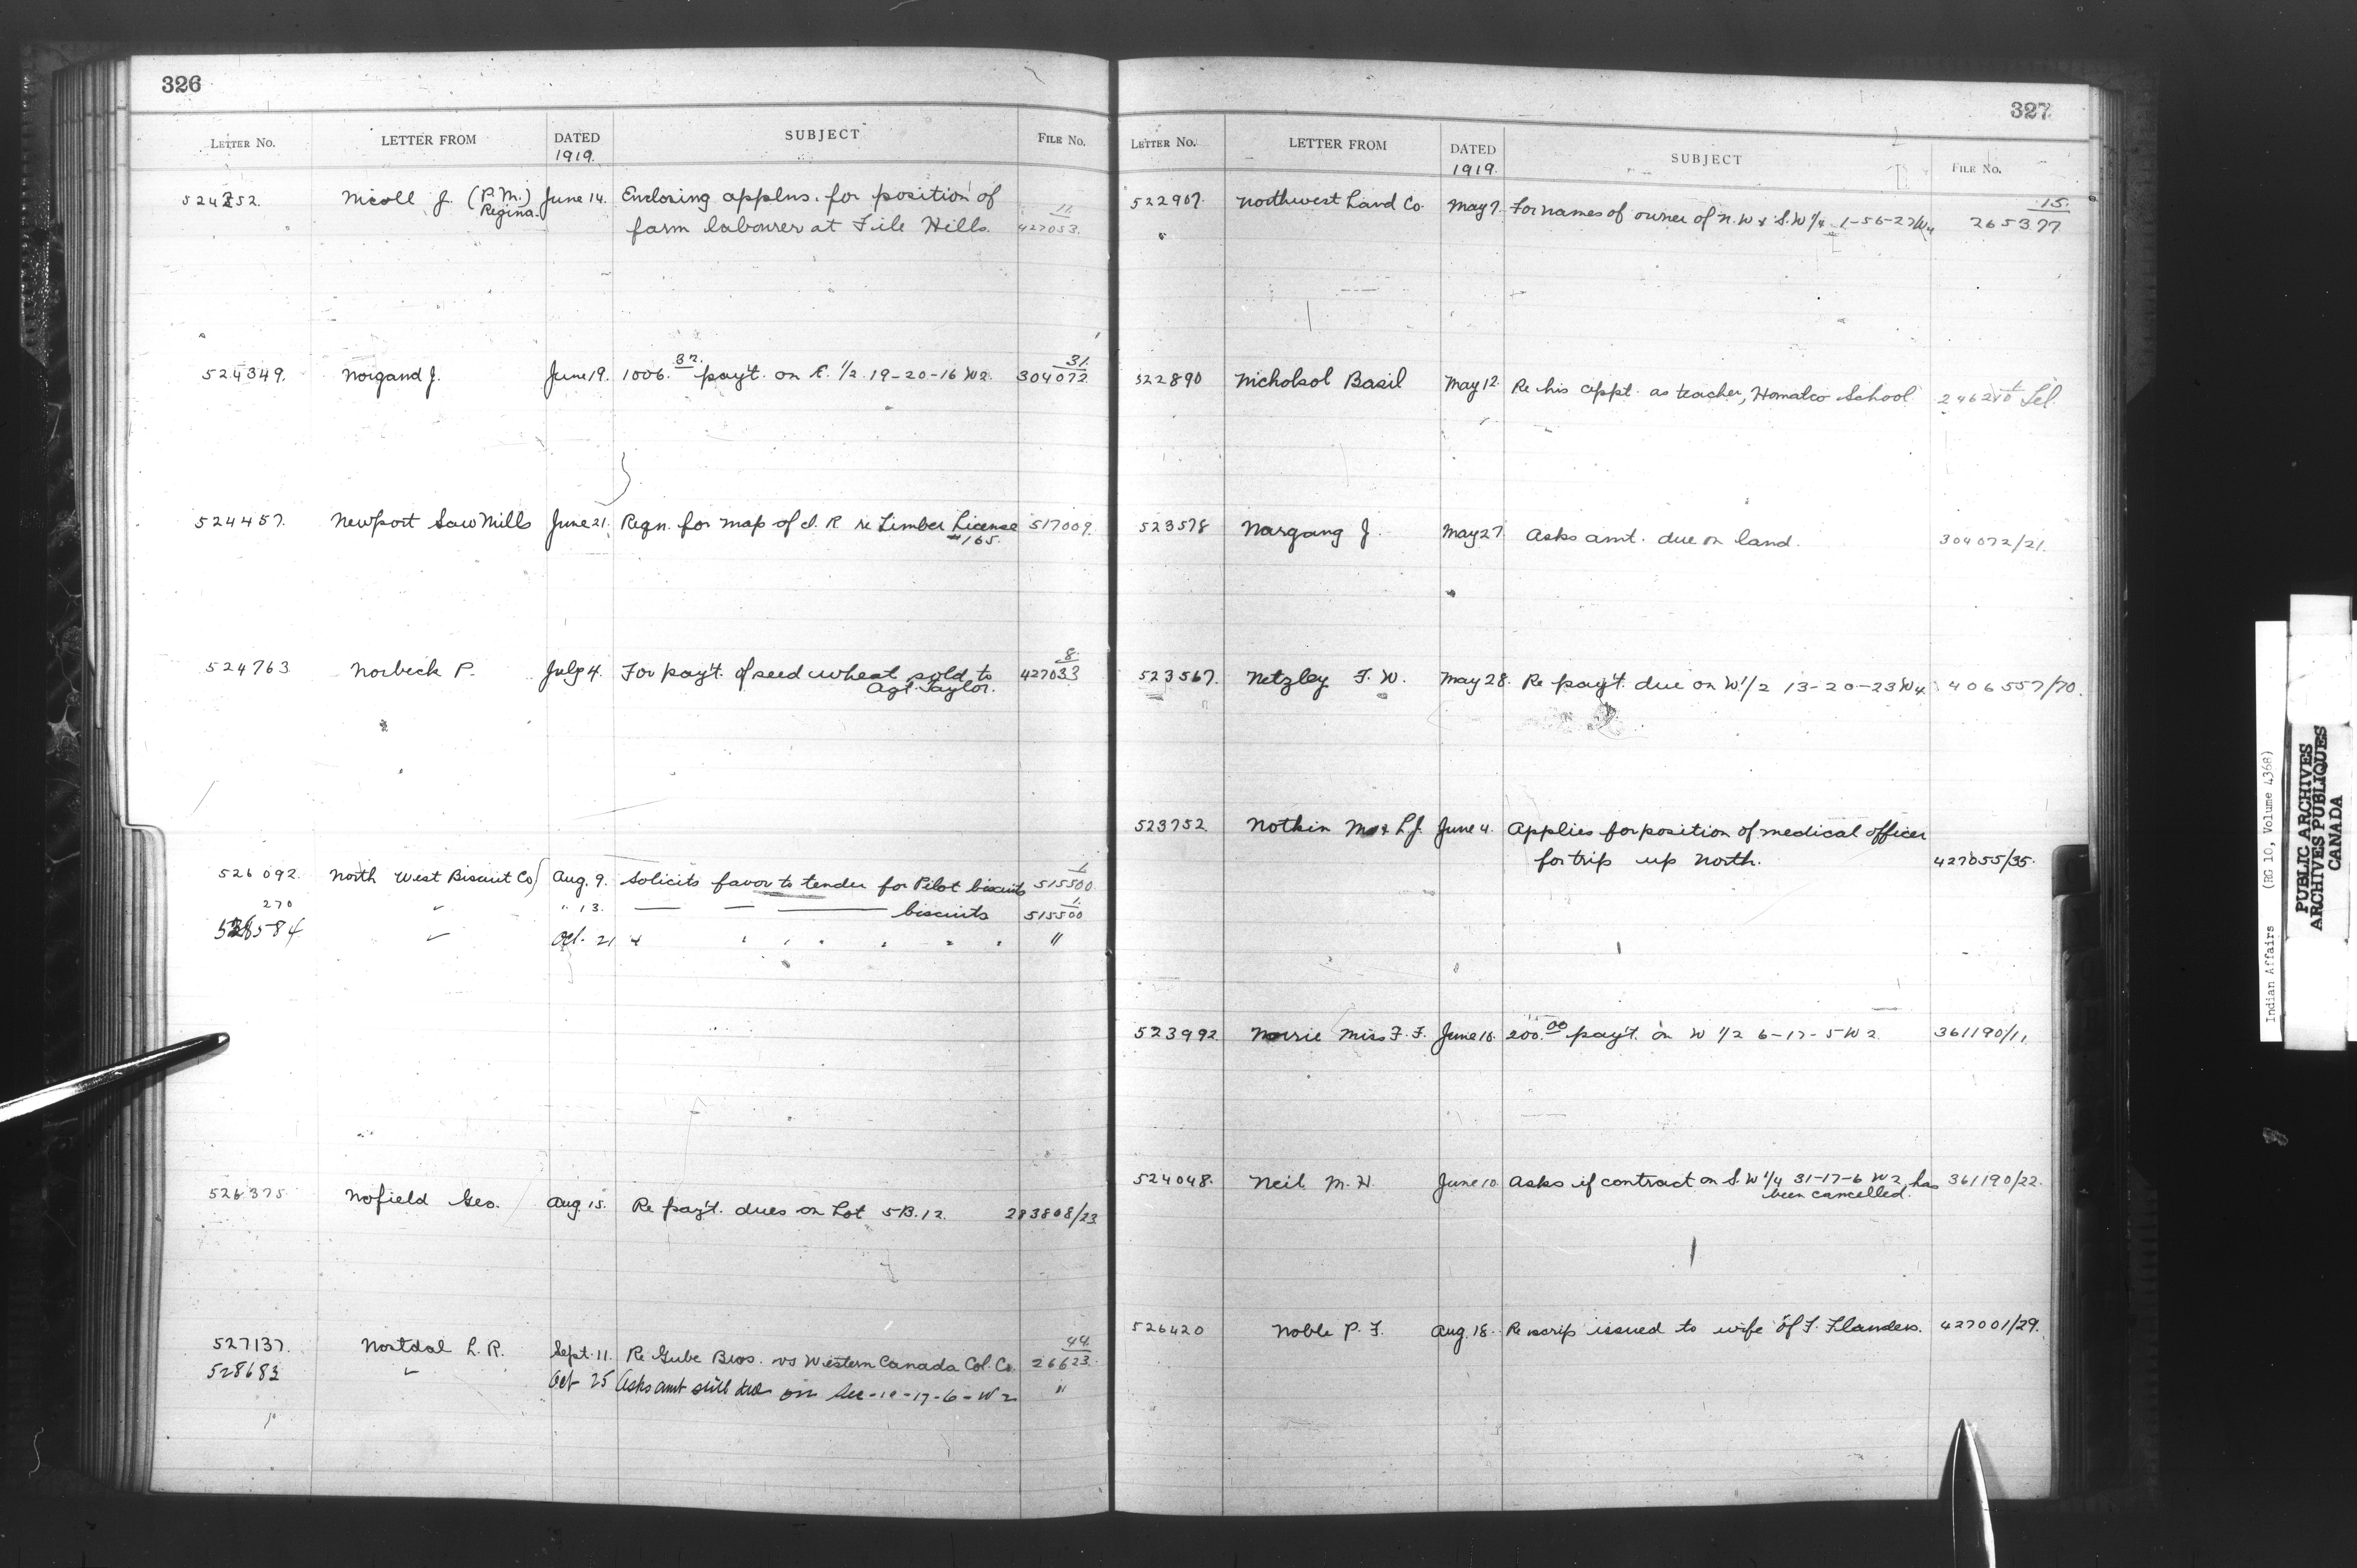 326
LETTER NO. LETTER FROM DATED SUBJECT FILE No.
1919.
524252. Nicoll J. (P.M.) June 14. Enclosing applns. for position of 11
Regina. farm labourer at File Hills. 427053.
524349. Norgand J. June 19. 1006.32 pay't. on E. 1/2 19-20-16 W2. 31. 304072
524457. Newport Saw Mills June 21. Reqn. for map of I. R re Timber License 517009.
#165.
524763 Norbeck P. July 4. For pay't. of seed wheat sold to 8. 427033
Agt. Taylor.
526092. North West Biscuit Co Aug. 9. Solicits favor to tender for Pilot biscuits 1 515500
270 " 13. biscuits 1. 515500
528584 Oct. 21 "
526375 Nofield Geo. Aug 15. Re pay't. dues on Lot 5 B.12. 283808/23
527137. Nortdal L. R. Sept. 11. Re Gube Bros. vs Western Canada Col. Co. 44 26623.
528683 Oct 25 Asks amt still due on Sec-10-17-6-W2 "
327
LETTER No. LETTER FROM DATED SUBJECT FILE No.
1919.
522907. Northwest Land Co. May 7. For names of owner of N.W & S.W 1/4 1-56-27 W4 15. 265377
522890 Nicholsol Basil May 12. Re his appt. as teacher, Homalco School
523578 Nargang J. May 27 Asks amt. due on land. 304072/21.
523567. Netzley F. W. May 28. Re pay't. due on W 1/2 13-20-23 W4 406557/70.
523752 Nothin L.J. June 4. Applies for position of medical officer
for trip up North. 427055/35.
523992 Norrie Miss F. F. June 10. 200.00 pay't. on W 1/2 6-17-5 W2 361190/11.
524048. Neil M. H. June 10 Asks if contract on S. W 1/4 31-17-6 W2 has 361190/22.
been cancelled.
526420 Noble P. F. Aug. 18. Re scrip issued to wife of F. Flanders. 427001/29.
Indian Affairs (RG 10, Volume 4368)
PUBLIC ARCHIVES
ARCHIVES PUBLIQUES
CANADA